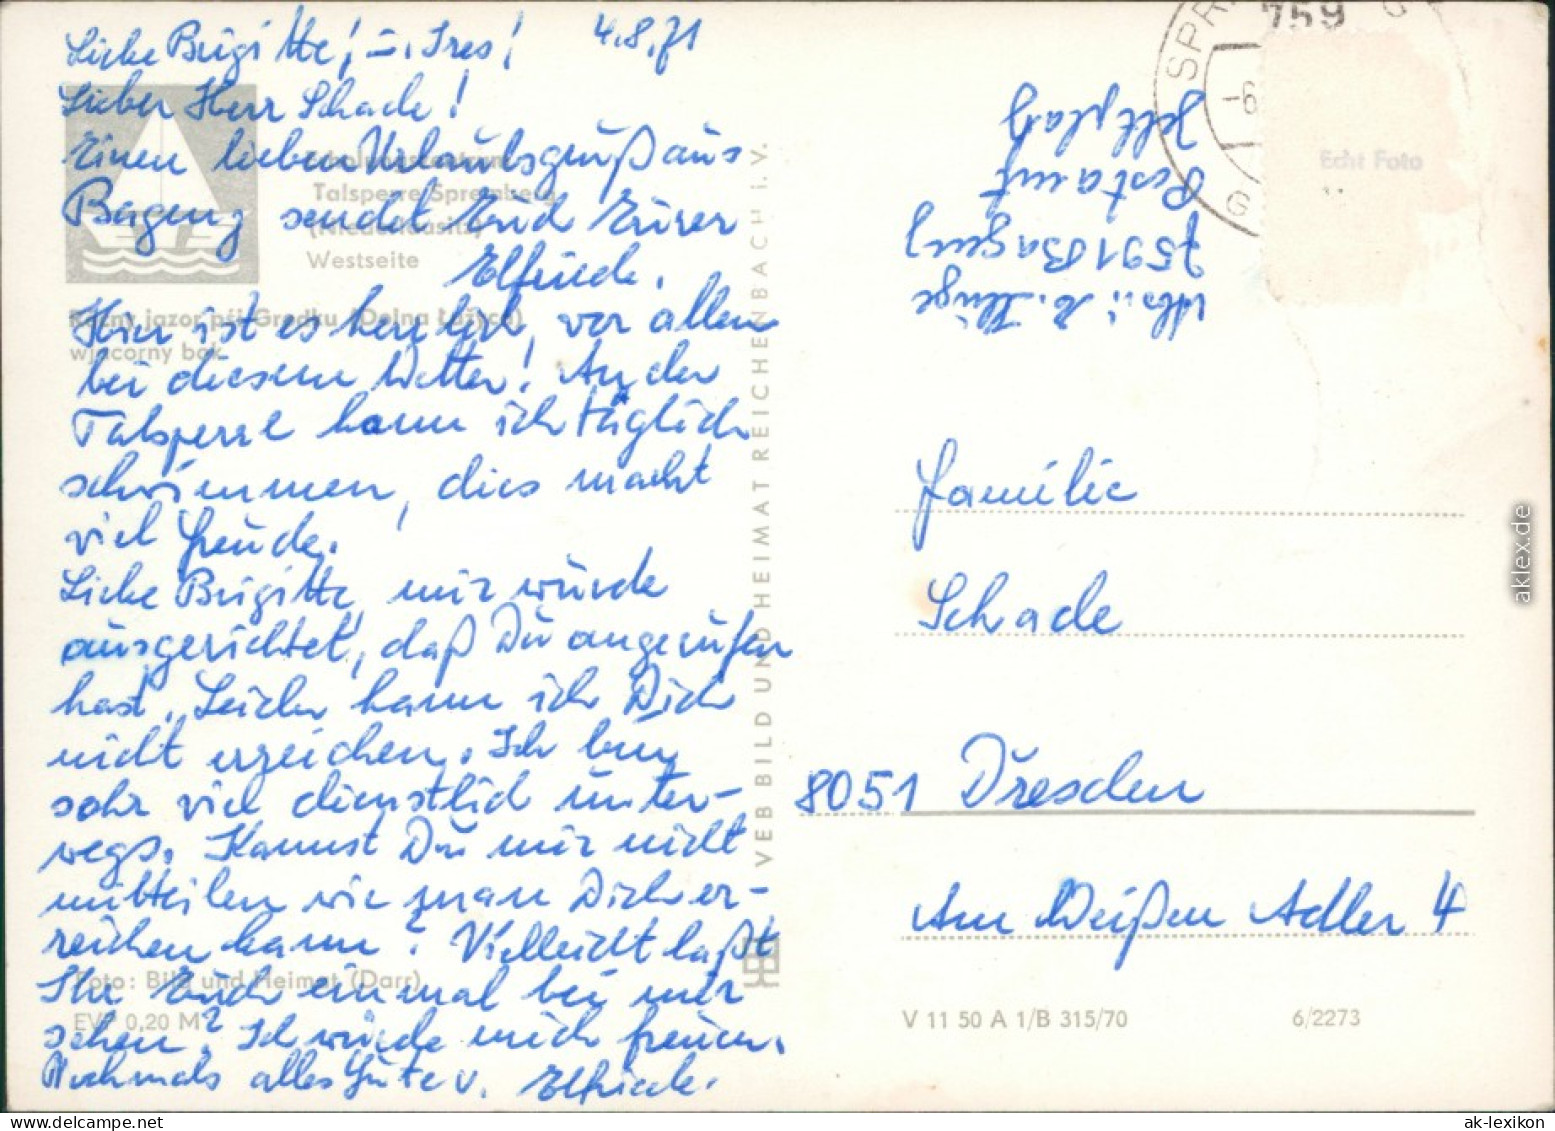 4.8.71
Liebe Brigitte! u. Ires!
Lieber Herr Schade!
Einen lieben Urlaubsgruß aus
Bagenz sendet Euch Eurer
Elfriede.
Hier ist es herrlich, vor allem
bei diesem Wetter! An der
Talsperre kann ich täglich
schwimmen, dies macht
viel Freude.
Liebe Brigitte, mir würde
ausgerichtet, daß Du angerufen
hast. Leider kann ich Dich
nicht erreichen. Ich bin
sehr viel dienstlich unter-
wegs. Kannst Du mir nicht
mitteilen wie man Dich er-
reichen kann? Vielleicht laßt
Ihr Euch einmal bei mir
sehen? Ich würde mich freuen.
Nochmals alles Gute v. Elfriede.
Erholungszentrum
Talsperre Spremberg
(Niederlausitz)
Westseite
Rěčny jazor pśi Grodku (Dolna Łužyca)
wjacorny bok
Foto: Bild und Heimat (Darr)
EVP 0,20 M
VEB BILD UND HEIMAT REICHENBACH I. V.
759
SPR
-6
G
Echt Foto
Abs.: E. Kluge
7591 Bagenz
Postamt
Zeltplatz
Familie
Schade
8051 Dresden
Am Weißen Adler 4
V 11 50 A 1/B 315/70
6/2273
aklex.de
ak-lexikon